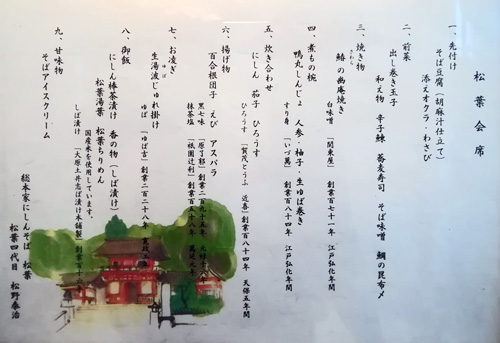 松葉会席
一、先付け
そば豆腐（胡麻汁仕立て）
添えオクラ・わさび
二、前菜
出し巻き玉子
和え物 辛子鰊 蕎麦寿司 そば味噌 鯛の昆布〆
三、焼き物
鰆の幽庵焼き
さわら
白味噌 「関東屋」創業百八十一年 江戸弘化年間
四、煮もの椀
鴨丸しんじょ 人参・柚子・生ゆば巻き
すり身 「いづ萬」創業百八十四年 江戸弘化年間
五、炊き合わせ
にしん 茄子 ひろうす
ひろうす 「賀茂とうふ 近喜」創業百八十四年 天保五年間
六、揚げ物
百合根団子 えび アスパラ
黒七味 「原了郭」
抹茶塩 「祇園辻利」
七、お凌ぎ
生湯波じゅれ掛け
ゆば 「ゆば吉」創業二百二十八年
八、御飯
にしん棒茶漬け 香の物（しば漬け）
松葉湯葉 松葉ちりめん
国産米を使用しています。
しば漬け 「大原土井志ば漬け本舗製」
九、甘味物
そばアイスクリーム
総本家にしんそば 松葉
松葉四代目 松野泰治